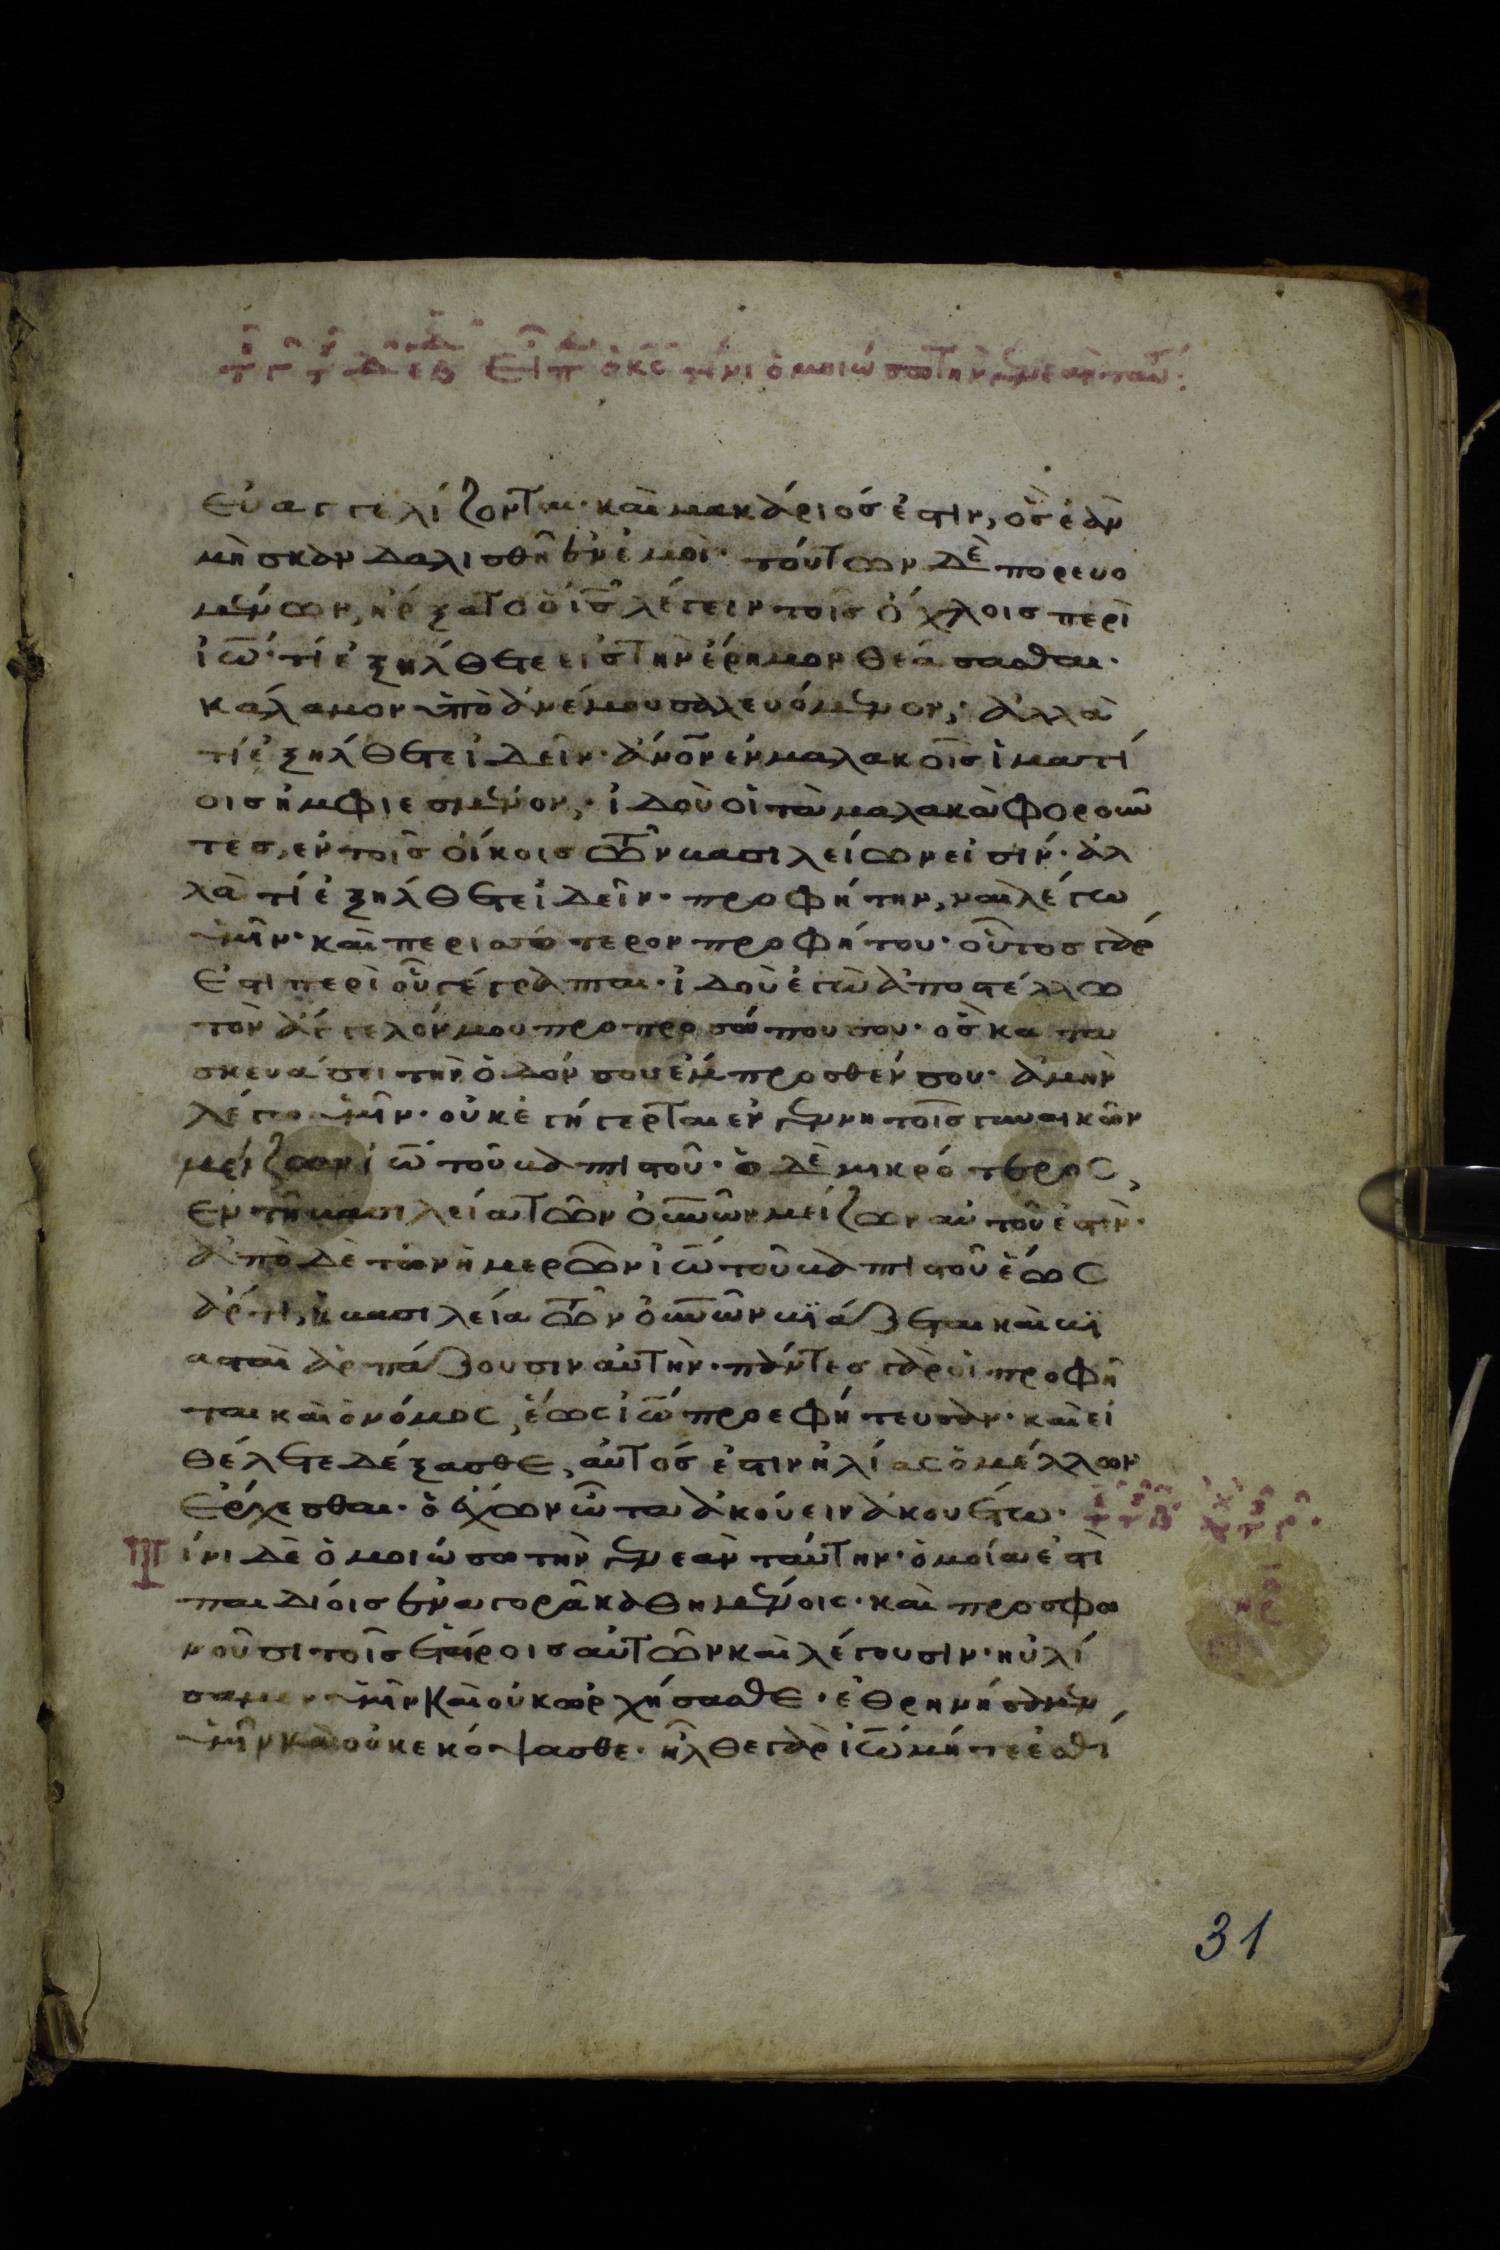 εὐαγγελίζονται· καὶ μακάριός ἐστιν, ὃς ἐὰν
μὴ σκανδαλισθῆ ἐν ἐμοί· τούτων δὲ πορευο
μένων, ἤρξατο ὁ ις λέγειν τοῖς ὄχλοις περὶ
ἰω· τί ἐξήλθετε εἰς τὴν ἔρημον θεάσασθαι·
κάλαμον ὑπὸ ἀνέμου σαλευόμενον; ἀλλὰ
τί ἐξήλθετε ἰδεῖν· ἄνον ἐν μαλακοῖς ἱματί
οις ἠμφιεσμένον; ἰδοὺ οἱ τὰ μαλακὰ φοροῦν
τες, ἐν τοῖς οἴκοις τῶν βασιλείων εἰσίν· ἀλ
λὰ τί ἐξήλθετε ἰδεῖν· προφήτην, ναὶ λέγω
ὑμῖν· καὶ περισσότερον προφήτου· οὗτος γάρ
ἐστι περὶ οὗ γέγραπται· ἰδοὺ ἐγὼ ἀποστέλλω
τὸν ἄγγελόν μου προ προσώπου σου· ὃς κατα
σκευάσει τὴν ὁδόν σου ἔμπροσθέν σου· ἀμὴν
λέγω ὑμῖν· οὐκ ἐγήγερται ἐν γεννητοῖς γυναικῶν
μείζων ἰω τοῦ βαπτιστοῦ· ὁ δὲ μικρότερος,
ἐν τῆ βασιλεία τῶν οὐνῶν μείζων αὐτοῦ ἐστὶν·
ἀπὸ δὲ τῶν ἡμερῶν ἰω τοῦ βαπτιστοῦ ἕως
ἄρτι, ἡ βασιλεία τῶν οὐνῶν βιάζεται καὶ βι
ασταὶ ἁρπάζουσιν αὐτήν· πάντες γὰρ οἱ προφῆ
ται καὶ ὁ νόμος, ἕως ἰω προεφήτευσαν· καὶ εἰ
θέλετε δέξασθε, αὐτός ἐστιν ἠλίας ὁ μέλλων
ἔρχεσθαι· ὁ ἔχων ὦτα ἀκούειν ἀκουέτω·
Τίνι δὲ ὁμοιώσω τὴν γενεὰν ταύτην· ὁμοία ἐστὶ
παιδίοις ἐν ἀγορᾶ καθημένοις· καὶ προσφω
νοῦσι τοῖς ἑταίροις αὐτῶν καὶ λέγουσιν· ηὐλί
σαμεν ὑμῖν καὶ οὐκ ὠρχήσασθε· ἐθρηνήσαμεν
ὑμῖν καὶ οὐκ ἐκόψασθε· ἦλθε γὰρ ἰω μήτε ἐσθί
31